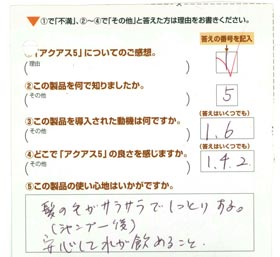 ▼①で「不満」、②~④で「その他」と答えた方は理由をお書きください。
答えの番号を記入
「アクアス5」についてのご感想。
理由
②この製品を何で知りましたか。
その他
5
(答えはいくつでも)
③この製品を導入された動機は何ですか。
その他
1.6
(答えはいくつでも)
④どこで「アクアス5」の良さを感じますか。
その他
1.4.2
⑤この製品の使い心地はいかがですか。
髪の毛がサラサラでしっとりする。
(シャンプー後)
安心して水が飲めること。